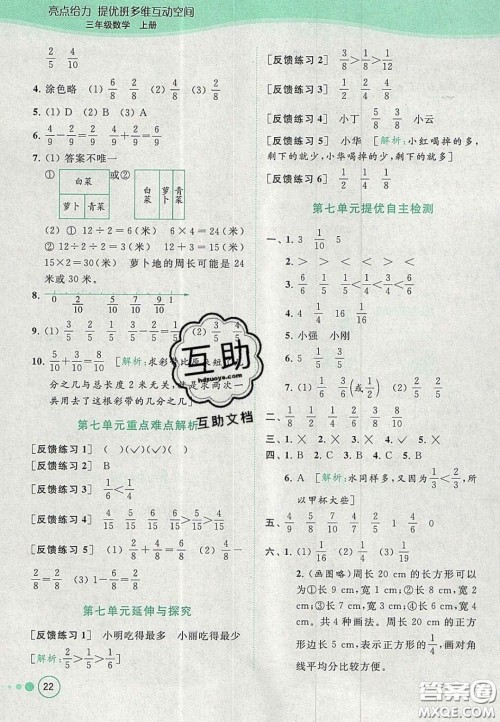 亮点给力 提优班多维互动空间
三年级数学 上册
2/5 4/10
4. 涂色略 (1) 6/8 2/8 (2) 3/8 5/8
5. (1) D (2) A (3) B
6. 4/9－2/9＝2/9 4/9＋2/9＝6/9
7. (1) 答案不唯一
① 白菜 萝卜 青菜 或② 白菜 萝卜 青菜
(2) ① 12÷2＝6(米) 6×2＝
12(米) ② 12÷2÷2＝3(米)
15×2＝30(米) 萝卜地的周长可能是
24 米或 30 米。
8. 0 2/10 5/10 7/10 9/10 1
9. (1) 3/5 2/5 1/5 (2) 3/4
10. 5/10＋3/10＝8/10 [解析:求彩带比原来短
分之几总长度 2 米无关,就是求两次一
共用去了这根彩带的几分之几]
第七单元重点难点解析
[反馈练习 1] ( )(✓)(✓)( )
[反馈练习 2] 略
[反馈练习 3] 1/6＜1/2
[反馈练习 4] 4/15 5/15 6/15
[反馈练习 5] (1) 2/8＋4/8＝6/8 (2) 4/8－
2/8＝2/8 (3) 1－6/8＝2/8
第七单元延伸与探究
[反馈练习 1] 小明吃得最多 小丽吃得最少
[解析: 1/2＞2/5＞1/5]
22
[反馈练习 2] 3/8＞1/8 1/4＞1/8
[反馈练习 3] 1/3 2/6 4/8
[反馈练习 4] 小丁 4/8 3/8 小云
[反馈练习 5] 小华 [解析:小红喝掉的多,
剩下的就少,小华喝掉的少,剩下的就多]
[反馈练习 6] 1/3
第七单元提优自主检测
一、1. 3 1/10 5
2. 3/5 2/5 1/5 1/2＜1/2＜6/7
3. ＞ ＜ ＞ ＞
4. 1/4 1/16 4 1/16
5. 小强 小刚
6. 1/5 1/10
7. (1) 1/3 (2) 1/3(或2/6) (3) 1/2
二、1/4 1/8 4/9 2/4 1/2 2/8
三、1. × 2. × 3. × 4. × 5. ×
四、1. C 2. B 3. C 4. B 5. A
6. A [解析:水同样多,又因为1/2＜2/3,所
以甲杯大些]
五、6/7 4/8 7/10 3/5 1/4 0
六、1. 3/4 1/3 3/6
2. (画图略) 周长 20 cm 的长方形可以
为①长 9 cm,宽 1 cm ②长 8 cm,宽
2 cm ③长 7 cm,宽 3 cm ④长 6 cm,宽
4 cm。共 4 种画法。周长 20 cm 的正方
形边长是 5 cm。表示正方形的1/4,画对角
线平均分比较方便。
互助
hdzuoye.com
互助文档
答案圈
MXQE.COM